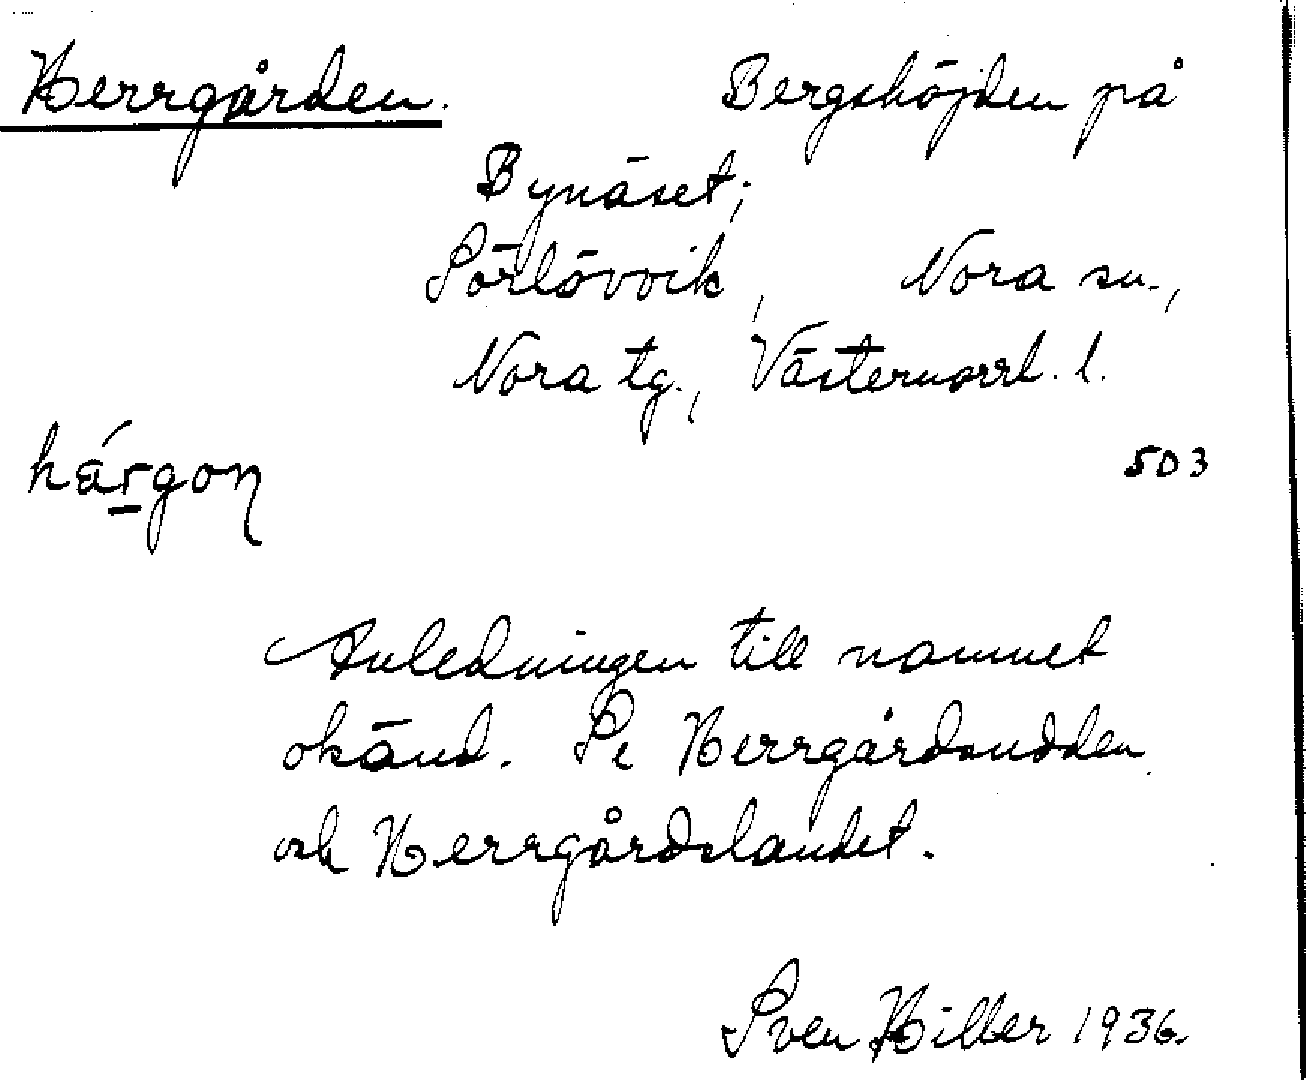 Herrgården. Bergshöjden på
Bynäset;
Sörlövvik, Nora sn.,
Nora tg., Västernorrl. l.
hárgon
503
Anledningen till namnet
okänd. Se Herrgårdsudden
och Herrgårdslandet.
Sven Hiller 1936.